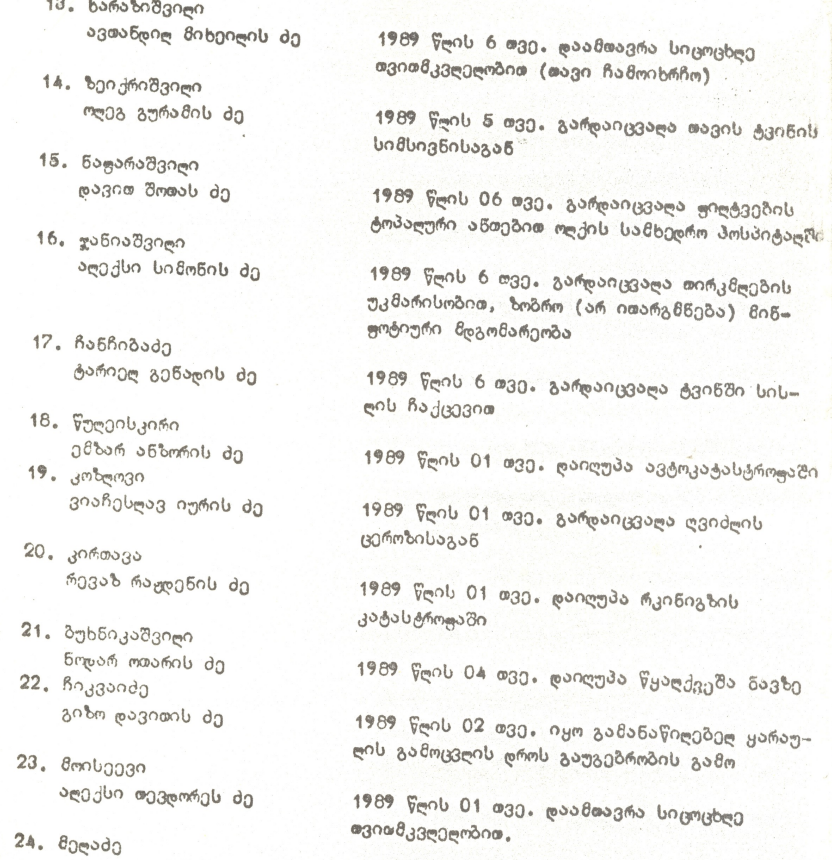 13. ხარაზიშვილი
ავთანდილ მიხეილის ძე
1989 წლის 6 თვე. დაამთავრა სიცოცხლე
თვითმკვლელობით (თავი ჩამოიხრჩო)
14. ზეიქრიშვილი
ოლეგ გურამის ძე
1989 წლის 5 თვე. გარდაიცვალა თავის ტკინის
სიმსივნისაგან
15. ნაფარაშვილი
დავით შოთას ძე
1989 წლის 06 თვე. გარდაიცვალა ფილტვების
ტოპალური ანთებით ოლქის სამხედრო ჰოსპიტალში
16. ჯანიაშვილი
ალექსი სიმონის ძე
1989 წლის 6 თვე. გარდაიცვალა თირკმლების
უკმარისობით, ზობრო (არ ითარგმნება) მინ-
ფოტიური მდგომარეობა
17. ჩანჩიბაძე
ტარიელ გენადის ძე
1989 წლის 6 თვე. გარდაიცვალა ტვინში სის-
ლის ჩაქცევით
18. წულეისკირი
ემზარ ანზორის ძე
1989 წლის 01 თვე. დაიღუპა ავტოკატასტროფაში
19. კოზლოვი
ვიაჩესლავ იურის ძე
1989 წლის 01 თვე. გარდაიცვალა ღვიძლის
ცეროზისაგან
20. კირთავა
რევაზ რაჟდენის ძე
1989 წლის 01 თვე. დაიღუპა რკინიგზის
კატასტროფაში
21. ბუხნიკაშვილი
ნოდარ ოთარის ძე
1989 წლის 04 თვე. დაიღუპა წყალქვეშა ნავზე
22. ჩიკვაიძე
გიზო დავითის ძე
1989 წლის 02 თვე. იყო გამანაწილებელ ყარაუ-
ლის გამოცვლის დროს გაუგებრობის გამო
23. მოისეევი
ალექსი თევდორეს ძე
1989 წლის 01 თვე. დაამთავრა სიცოცხლე
თვითმკვლელობით.
24. მელაძე